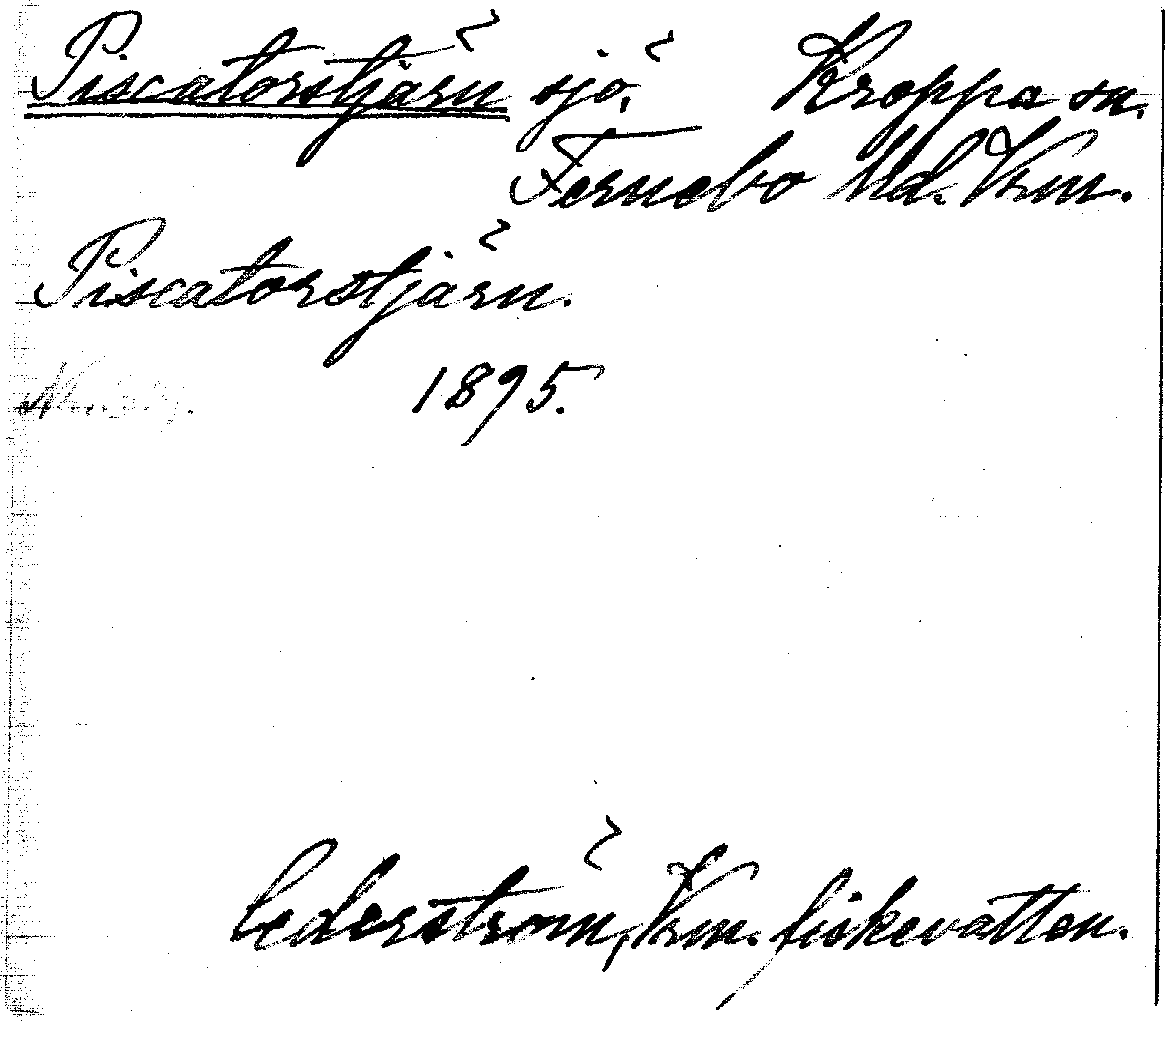 Piscatorstjärn sjö. Kroppa sn.
Fernebo hd. Vrm.
Piscatorstjärn.
1895.
Cederström, Vrm. fiskevatten.